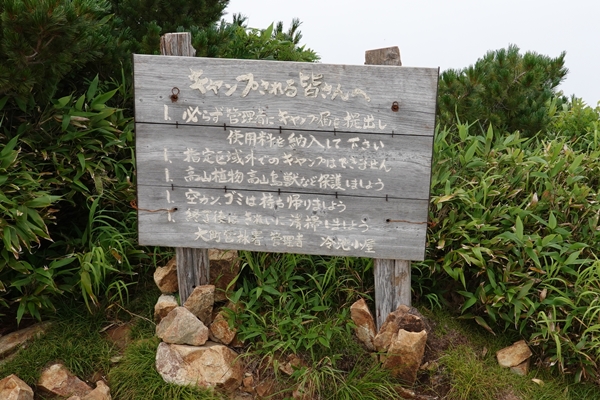 キャンプされる皆さんへ
1. 必らず管理者にキャンプ届を提出し
使用料を納入して下さい
1. 指定区域外でのキャンプはできません
1. 高山植物高山鳥獣など保護しましよう
1. 空カン、ゴミは持ち帰りましよう
1. 終了後はきれいに清掃しましよう
大町営林署 管理者 冷池小屋